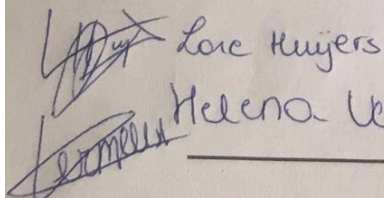 Lore Huijers
Helena Ve